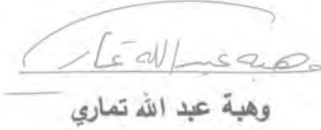 وهبة عبد الله تمار
وهبة عبد الله تماري